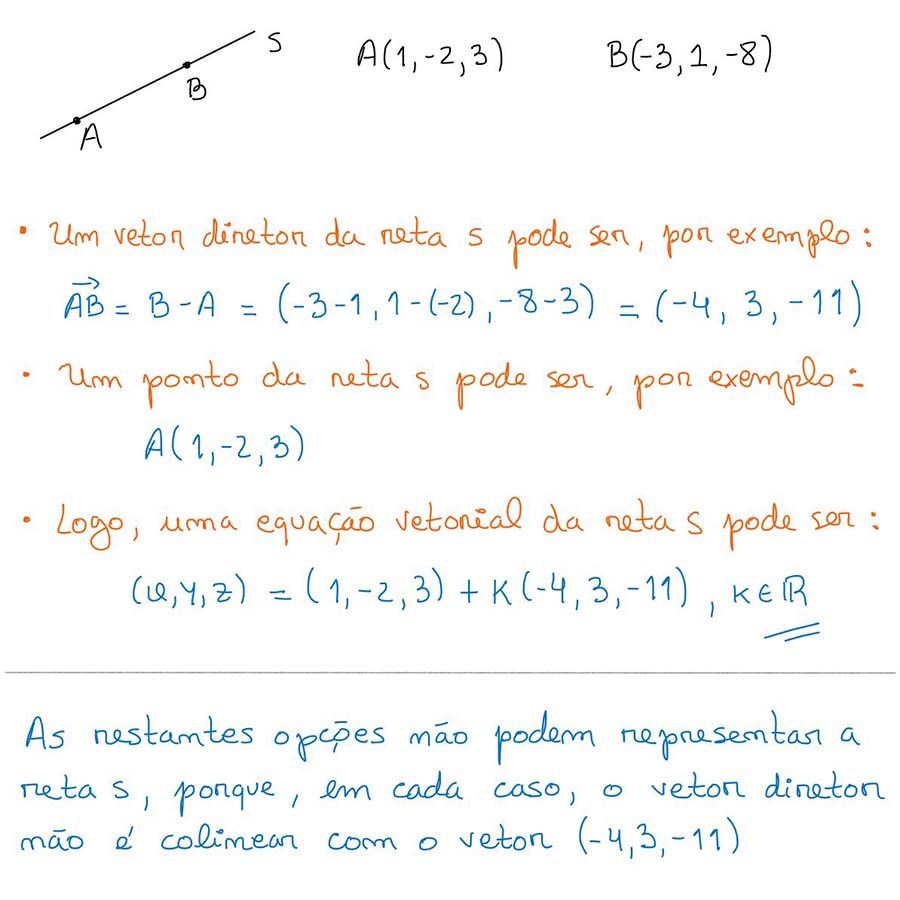 S A(1,-2,3) B(-3,1,-8)
B
A
• Um vetor diretor da reta s pode ser, por exemplo:
AB⃗ = B-A = (-3-1, 1-(-2), -8-3) = (-4, 3, -11)
• Um ponto da reta s pode ser, por exemplo:
A(1,-2,3)
• Logo, uma equação vetorial da reta s pode ser:
(x,y,z) = (1,-2,3) + K(-4,3,-11), K∈ℝ
As restantes opções não podem representar a
reta s, porque, em cada caso, o vetor diretor
não é colinear com o vetor (-4,3,-11)